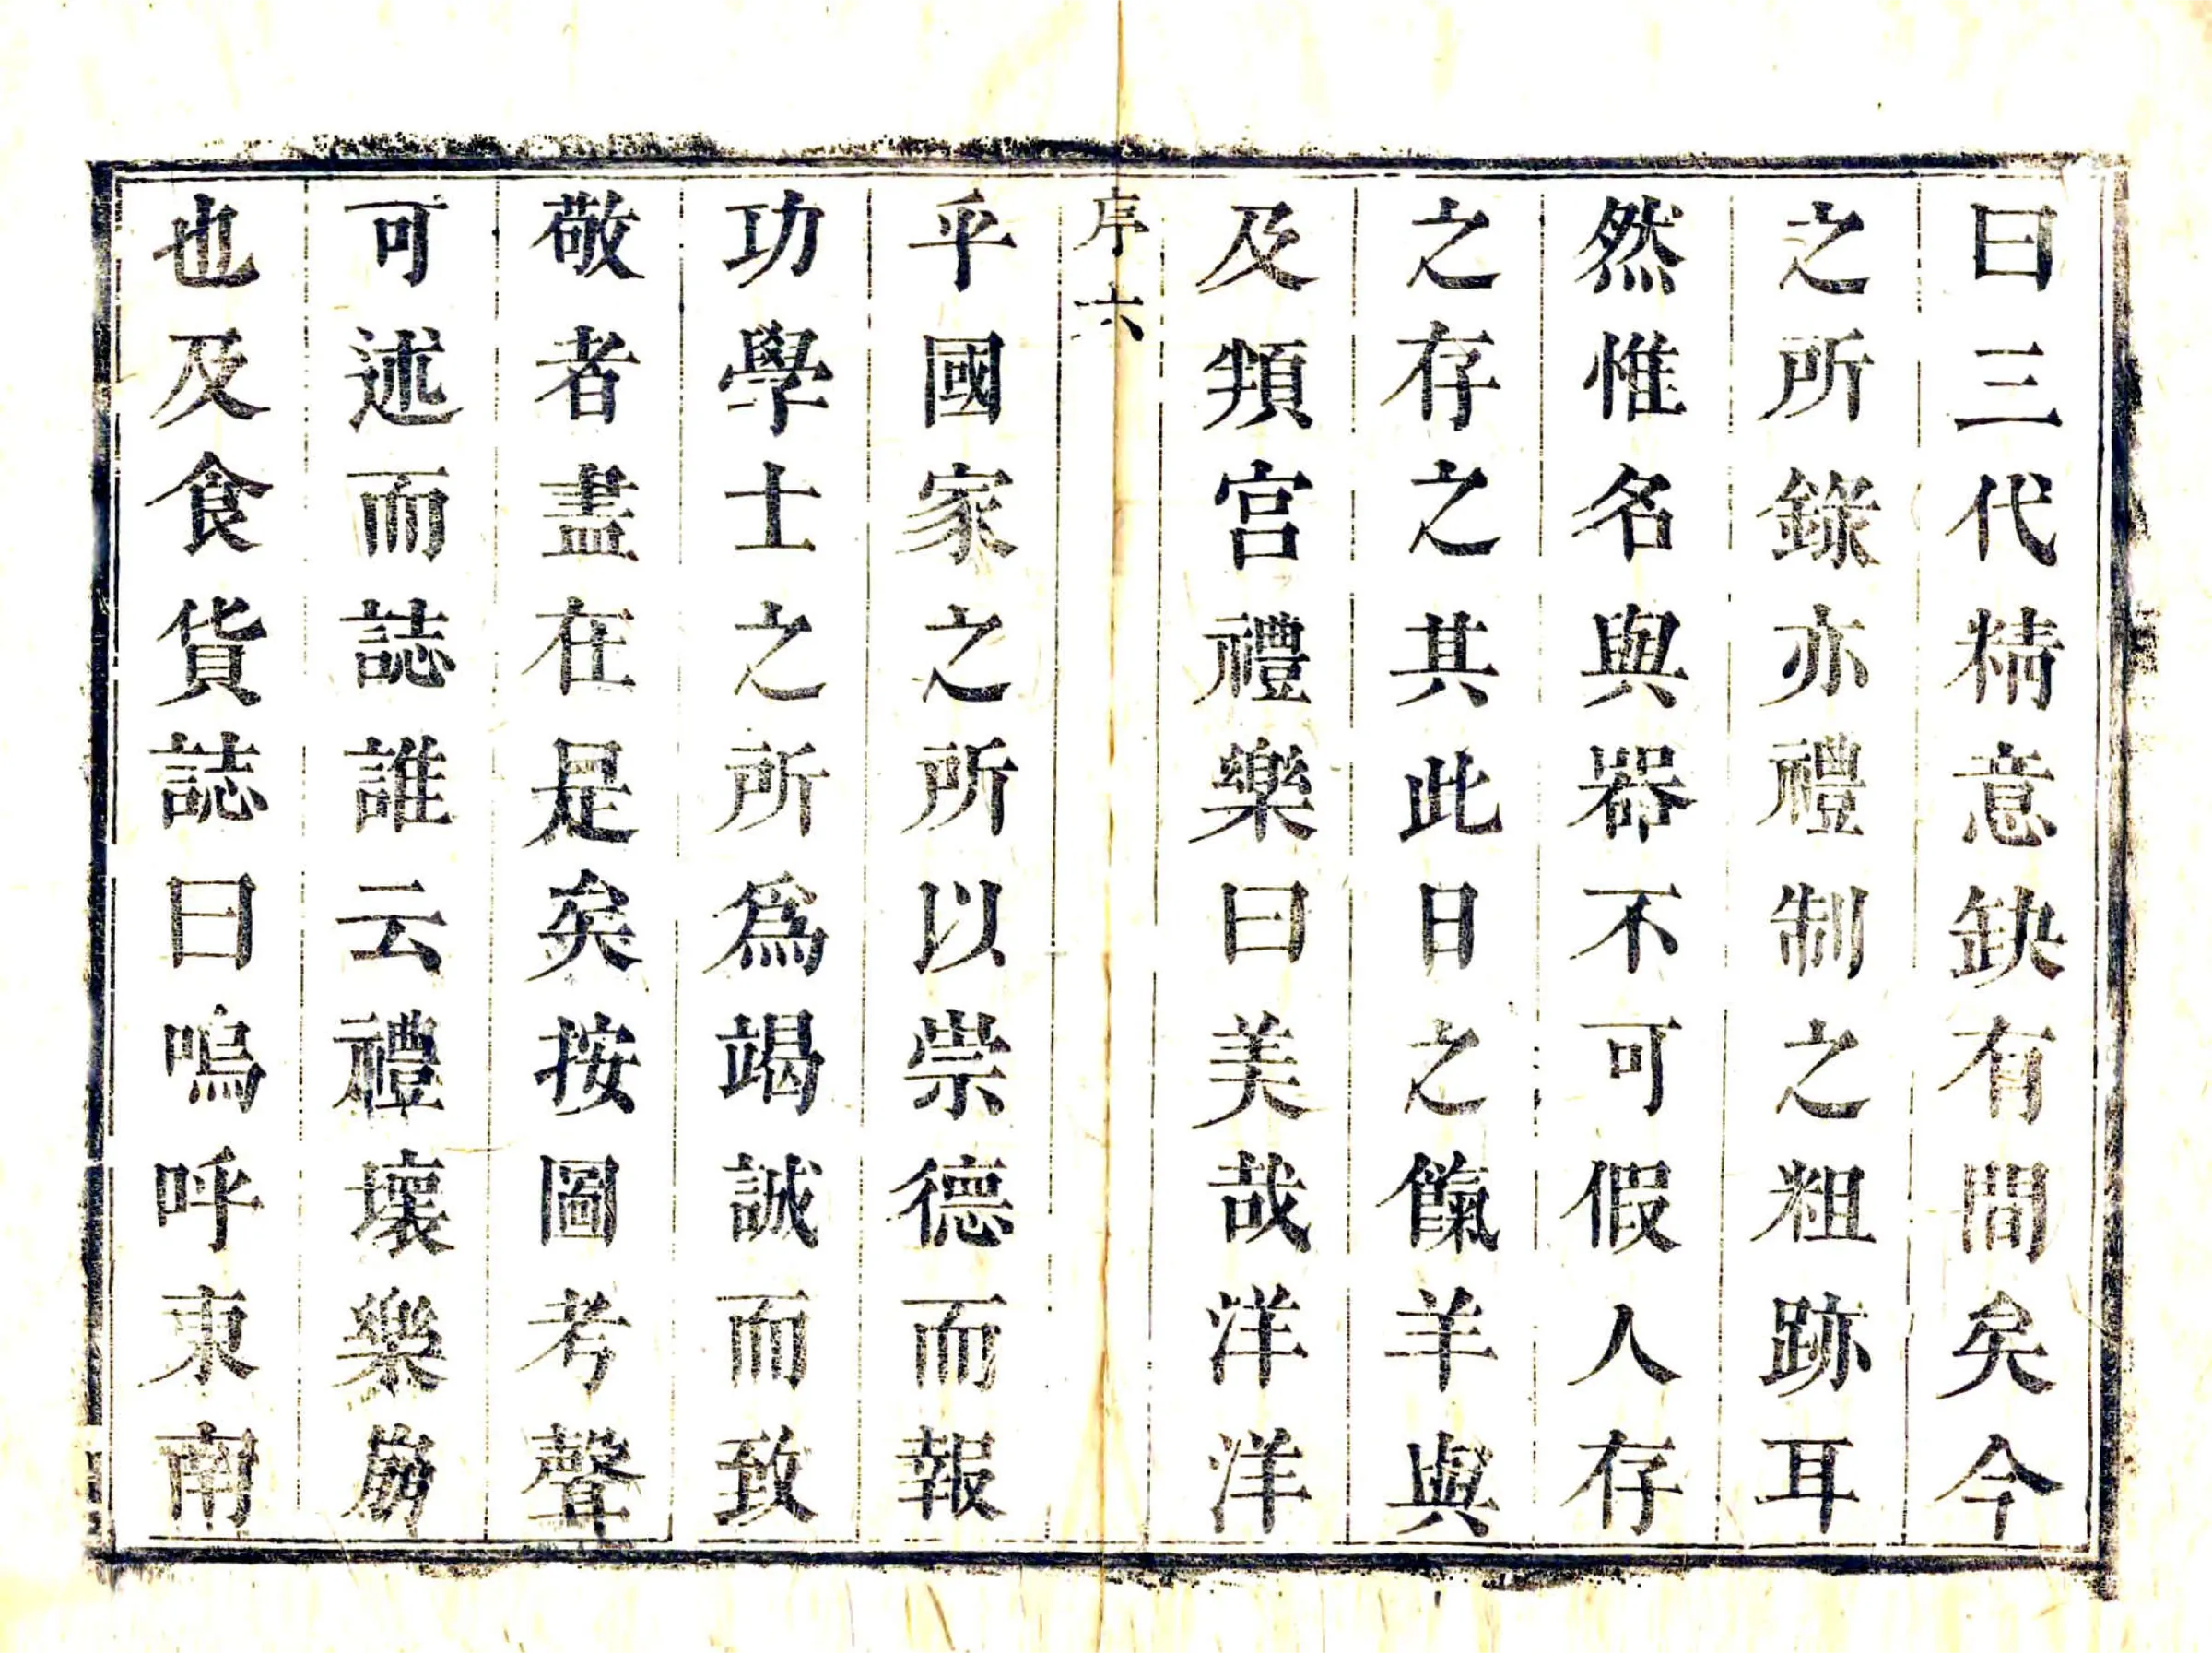 曰三代精意缺有間矣今
之所錄亦禮制之粗跡耳
然惟名與器不可假人存
之存之其此日之餼羊與
及頖宮禮樂曰美哉洋洋
序六
乎國家之所以崇德而報
功學士之所爲竭誠而致
敬者盡在是矣按圖考聲
可述而誌誰云禮壞樂崩
也及食貨誌曰嗚呼東南